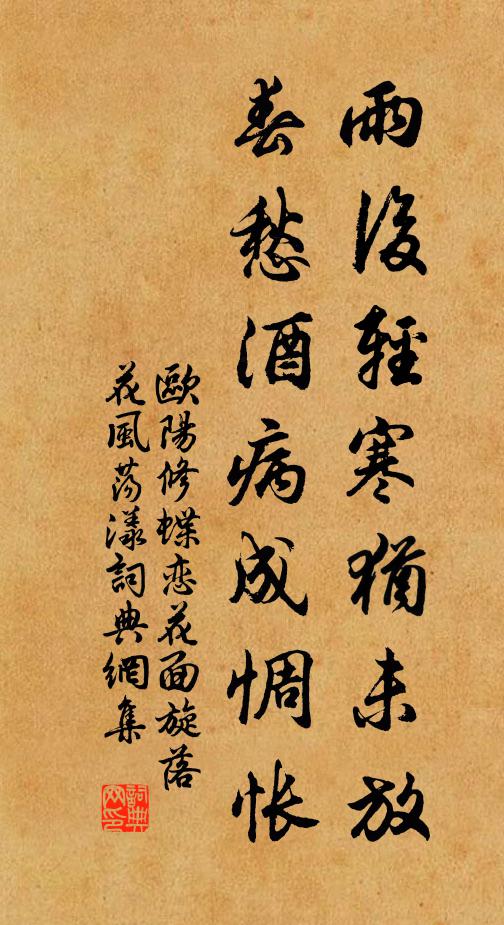 雨後輕寒猶未放
春愁酒病成惆悵
歐陽修蝶恋花面旋落
花風蕩漾詞典網集
詞典
网印